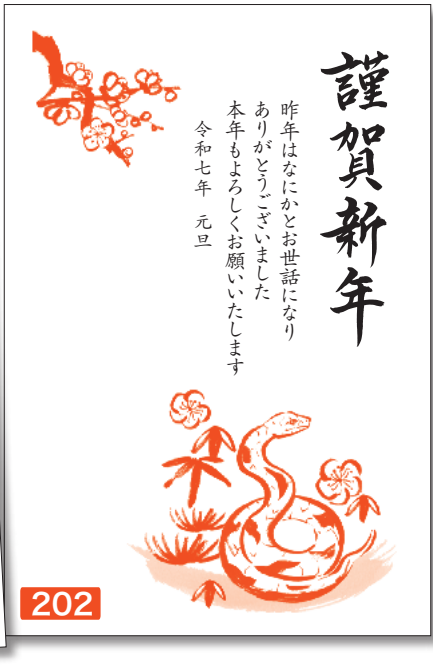 謹賀新年
昨年はなにかとお世話になり
ありがとうございました
本年もよろしくお願いいたします
令和七年　元旦
202